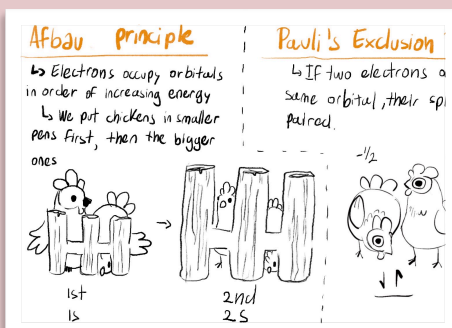 Afbau principle
↳ Electrons occupy orbitals
in order of increasing energy
↳ We put chickens in smaller
pens first, then the bigger
ones
1st
1s
2nd
2s
Pauli's Exclusion
↳ If two electrons
same orbital, their
paired.
-1/2